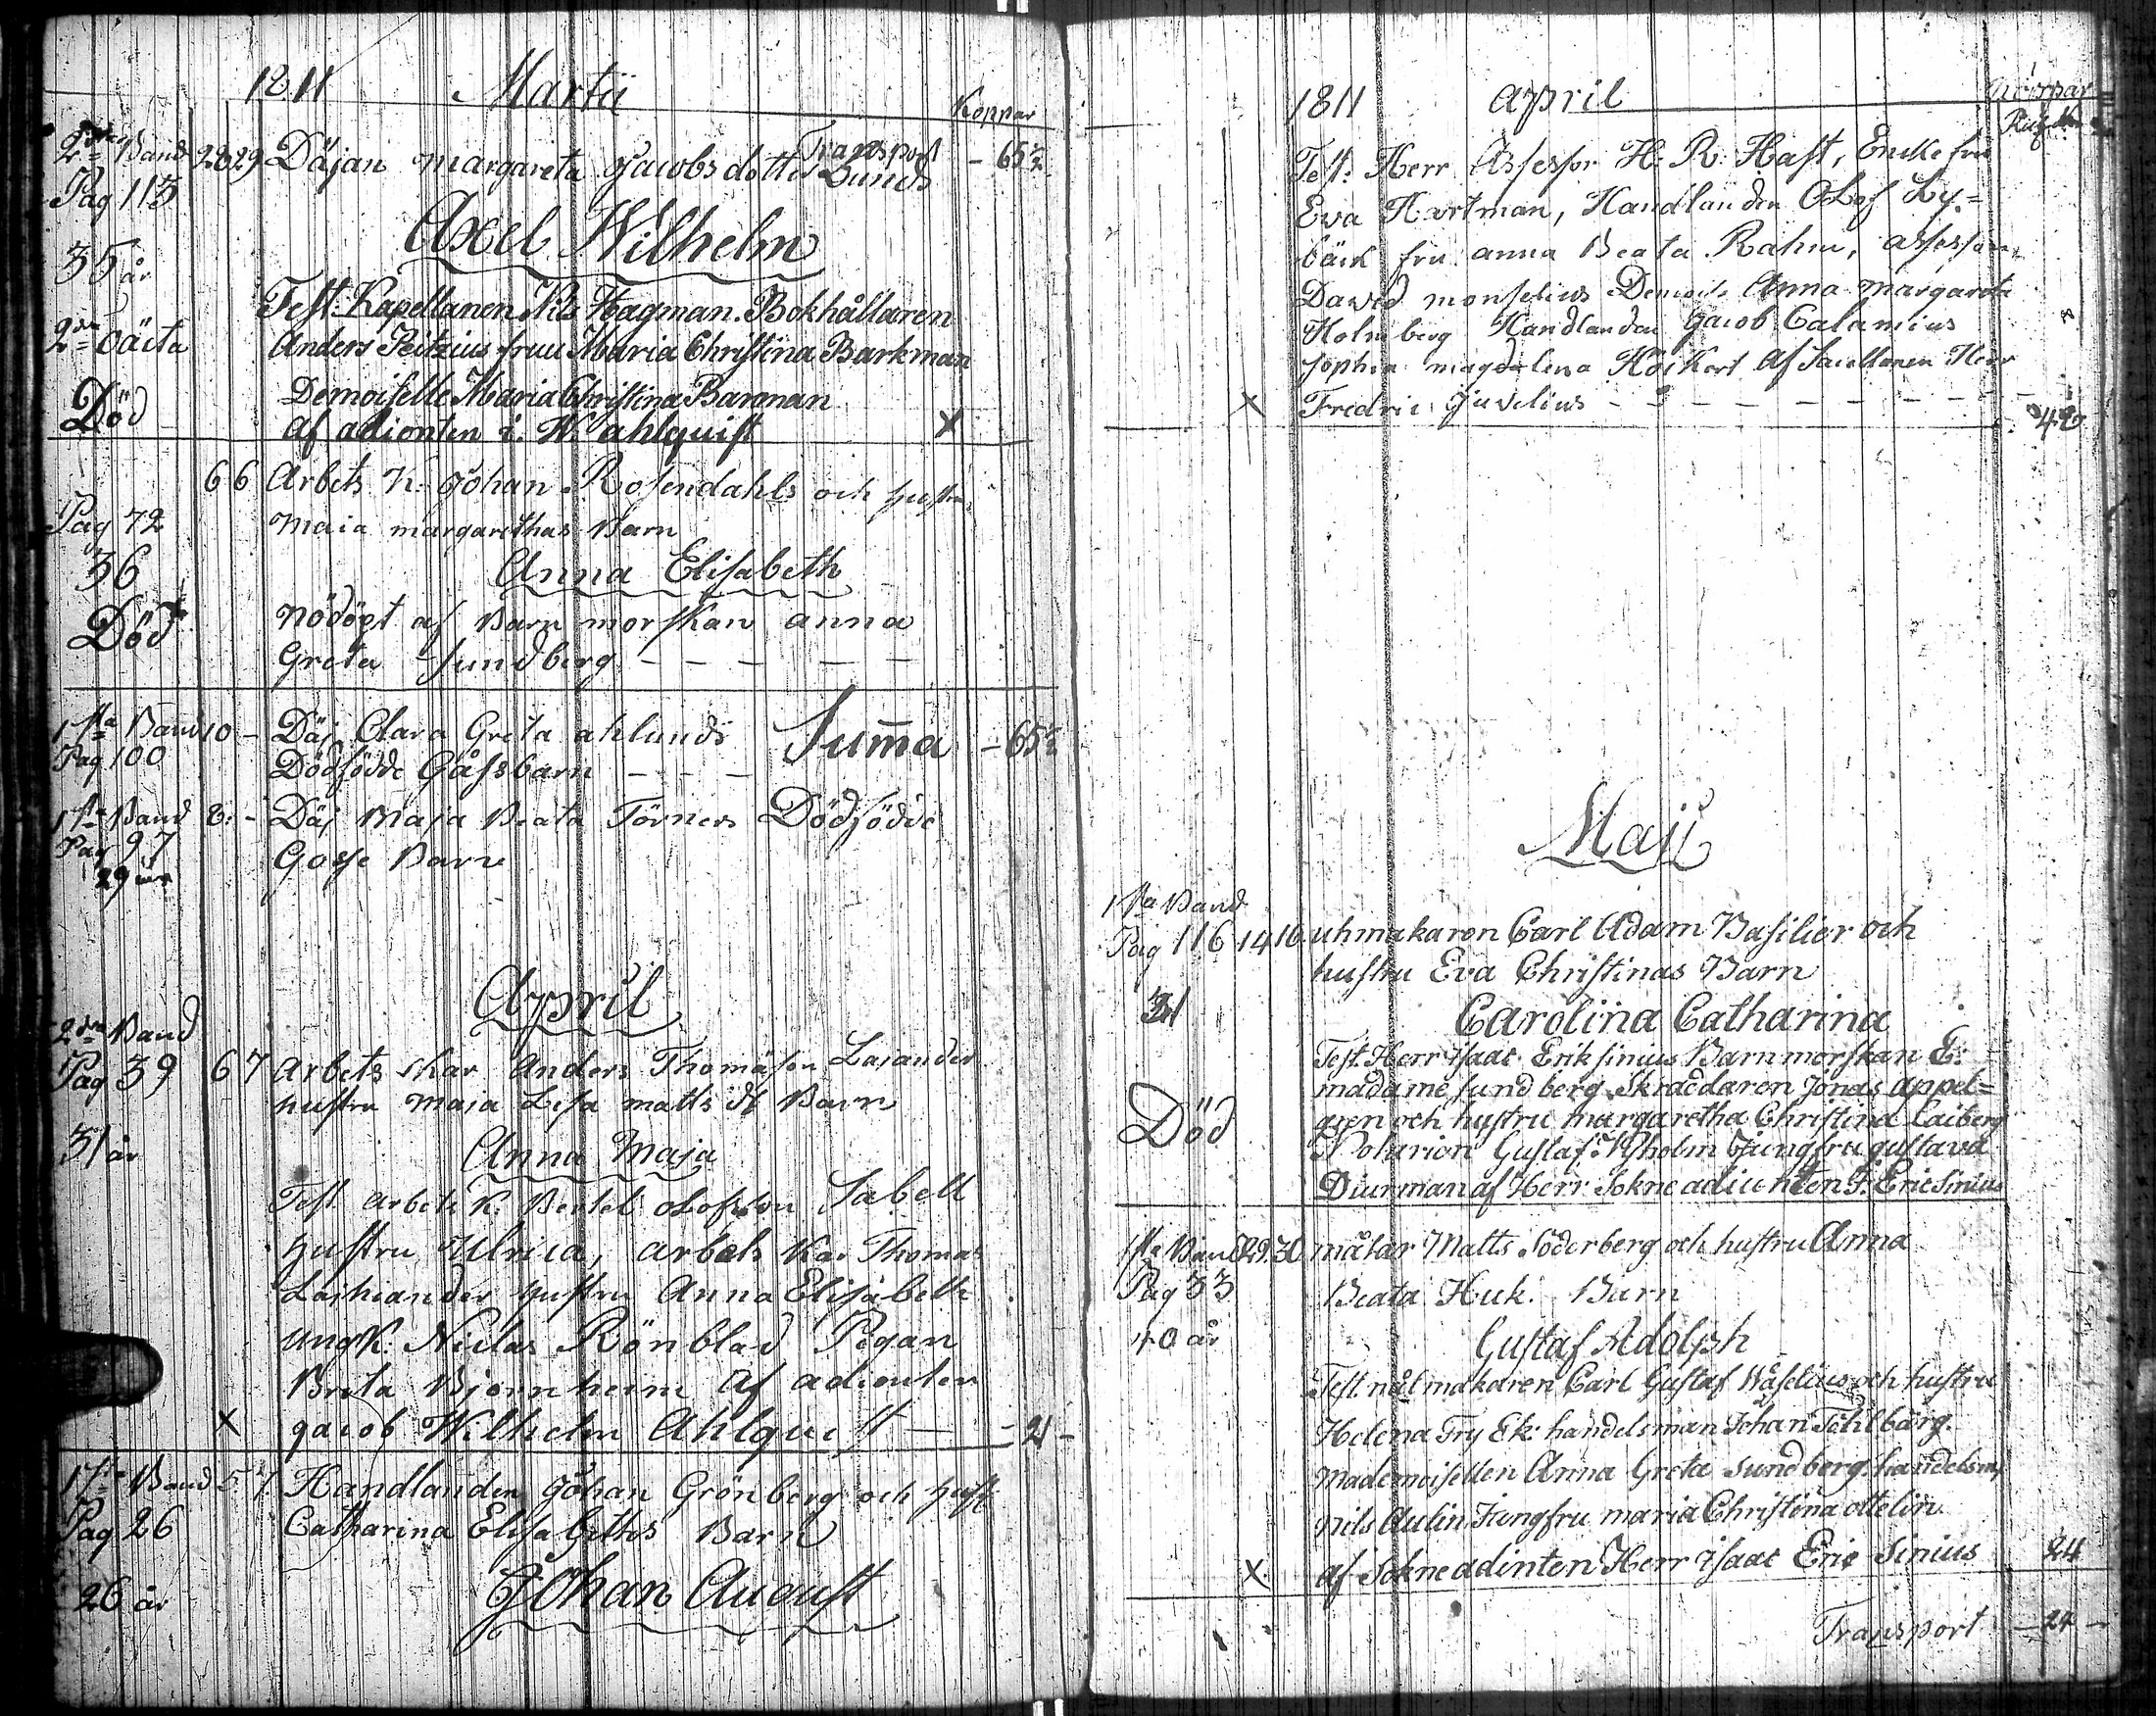 1811 Martii
Koppar
Transport - 65½
2dra Band 28 29 Däjan Margareta Jacobsdotter Lunds
Pag 113
Axel Wilhelm
35 år
Test: Kapellanen Nils Hagman. Bokhållaren
2dra oäcta Anders Peitzius fruu Maria Christina Barkman
Demoiselle Maria Christina Barman
Död af adionten i. W. ahlquist X
6 6 Arbets K: Johan Rosendahls och hustru
Pag 72 Maia margarethas Barn
36 Anna Elisabeth
Död nödöpt af Barn morskan anna
Greta Sundberg - - - - -
1sta Band 10 - Däj Clara Greta ahlunds Summa - 65½
Pag 100 Dödfödde Gåssbarn - - -
1sta Band 8: - Däj Maja Beata Törners Dödfödde
Pag 97 Gosse Barn
29 år
April
2dra Band
Pag 39 6 7 Arbets Kar Anders Thomäson Lasander
hustru Maja Lisa matts dr Barn
31 år Anna Maja
Test arbets K. Bertel olofsson Sabell
Hustru Ulrica, arbets Kar Thomas
hustru Anna Elisabeth
ungk: Niclas Rönblad Pigan
Brita Bjornheim af adionten
X Jacob Wilhelm Ahlquist - 21 -
1sta Band 5 7 Handlanden Johan Grönberg och hust
Pag 26 Catharina Elisabeths Barn
26 år Johan August
1811 april
Test: Herr Assessor H: R: Hast, Enke fru
Eva Hartman, Handlanden Olof Ly=
bäck fru anna Beata Rahm, assessor
David monselius Demois Anna margareta
Holmberg Handlanden Jacob Calamius
Sophia magdalena Höckert af Sacellanen Herr
X Fredric Juvelius - - - - - - - 40
Maji
1sta Band
Pag 116 14 16 uhrmakaren Carl Adam Basilier och
hustru Eva Christinas Barn
31 Carolina Catharina
Test. Herr isaac Erik sinius Barnmorskan E:
madame sundberg Skraddaren Jonas appel=
Död gren och hustru margaretha Christina Caiberg
Notarion Gustaf Nyholm Jungfru gustava
Diurman af Herr Sokne adiunten I: Ericsinius
1sta Band 29. 30 målar Matts Söderberg och hustru Anna
Pag 33 Beata Huk. Barn
40 år Gustaf Adolph
Test nålmakaren Carl Gustaf Wåselius och hustru
Helena Fry Ek: handelsman Johan
Mademoisellen Anna Greta Sundberg handelsm,
Nils Aulin Jungfru maria Christina ottelin
X af Sokne adinten Herr isaac Eric sinius 24
Transport - 24 -